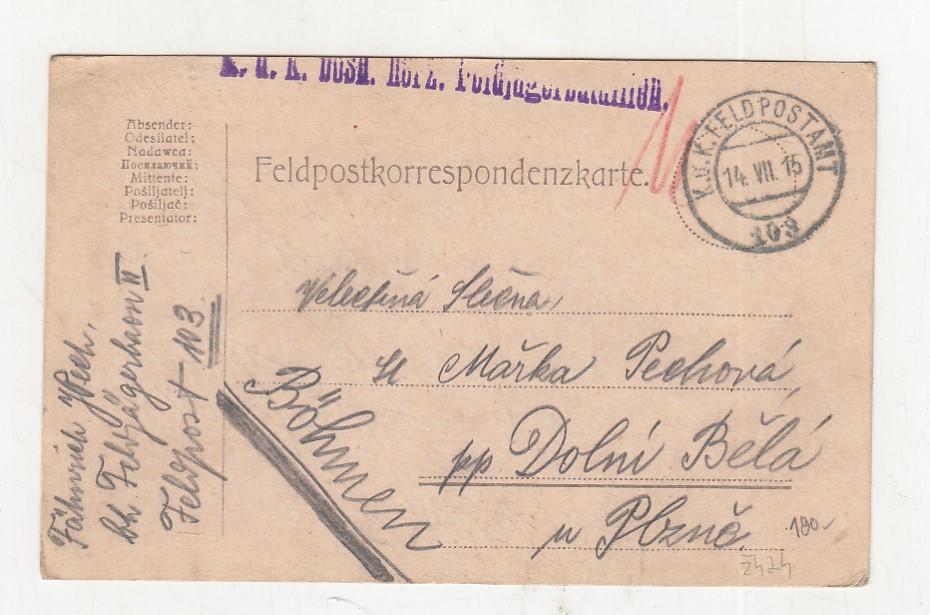 K. u. K. bosn. herz. Feldjägerbataillon.
Absender:
Odesílatel:
Nadawca:
Посилаючий:
Mittente:
Pošiljatelj:
Pošiljač:
Presentator:
Feldpostkorrespondenzkarte.
K.u.K. FELDPOSTAMT
14. VII. 15
103
Velectěná Slečna,
sl Mařka Pechová,
pp Dolní Bělá
u Plzně.
Böhmen
Fähnrich Pech,
bh. Feldjägerbaon II
Feldpost 103.
180-